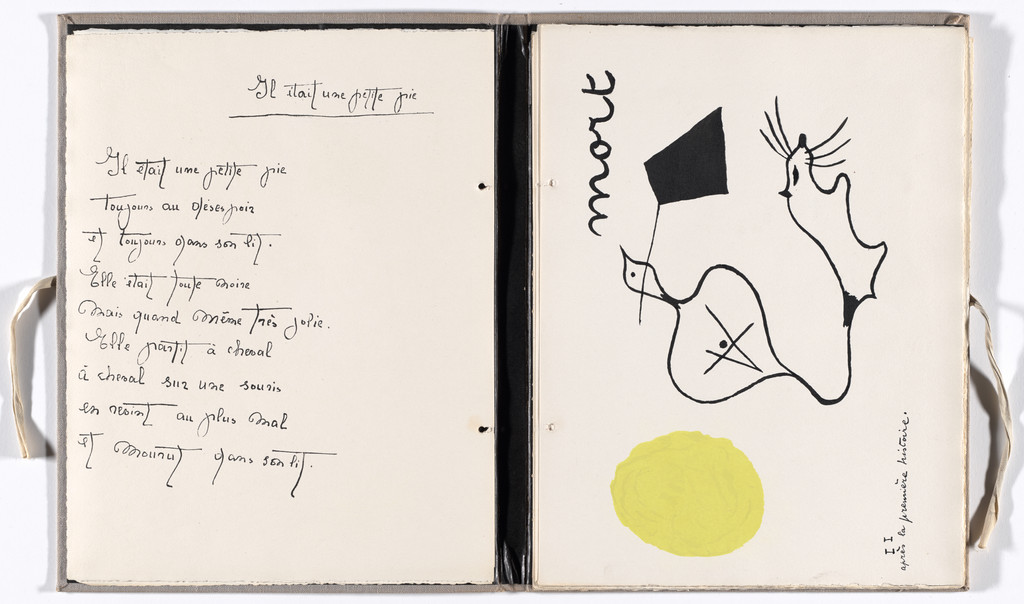 Il était une petite pie
Il était une petite pie
toujours au désespoir
et toujours dans son lit.
Elle était toute noire
Mais quand même très jolie.
Elle partit à cheval
à cheval sur une souris
en revint au plus mal
et mourut dans son lit.
mort
II
après la première histoire.